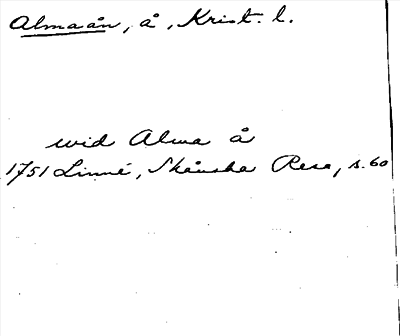 Almaån, å, Krist. l.
wid Alma å
1751 Linné, Skånska Resa, s. 60